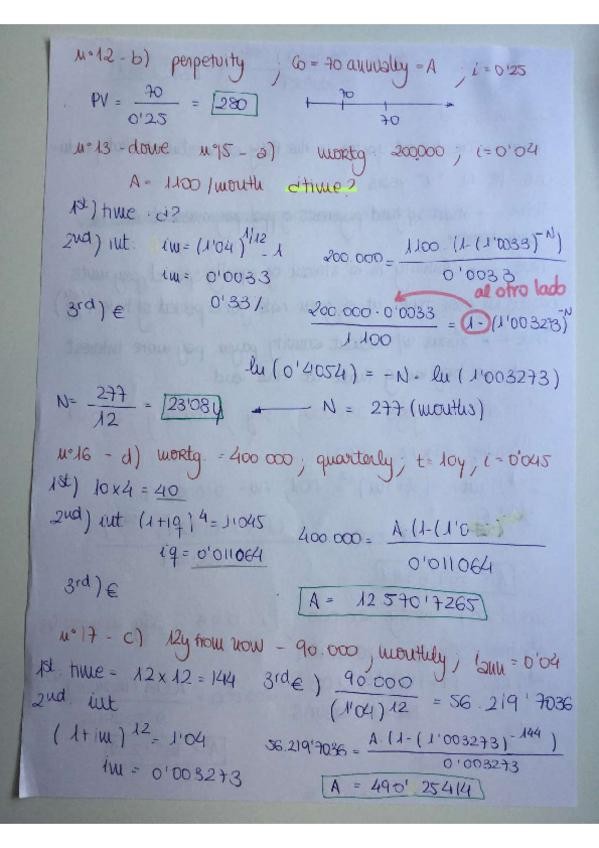 nº12 - b) perpetuity ; C0 = 70 annually = A ; i = 0'25
PV = 70 / 0'25 = 280
70
70
nº13 - done nº15 - a) mortg. 200.000 ; i = 0'04
A = 1.100 / month ¿time?
1st) time ¿?
2nd) int. im = (1'04)^1/12 - 1
200.000 = 1100 · (1 - (1'0033)^-N) / 0'0033
im = 0'0033
0'33%
al otro lado
3rd) €
200.000 · 0'0033 / 1.100 = 1 - (1'003273)^-N
ln (0'4054) = -N · ln (1'003273)
N = 277 / 12 = 23'08 y ← N = 277 (months)
nº16 - d) mortg. = 400 000 ; quarterly ; t = 10y , i = 0'045
1st) 10 x 4 = 40
2nd) int (1+iq)^4 = 1'045
400.000 = A · (1 - (1'0 / 0'011064
iq = 0'011064
3rd) €
A = 12 570'7265
nº17 - c) 12y from now - 90.000 , monthly ; iann = 0'04
1st. time = 12 x 12 = 144 3rd € ) 90.000 / (1'04)^12 = 56.219'7036
2nd. int
(1 + im)^12 = 1'04
56.219'7036 = A · (1 - (1'003273)^-144) / 0'003273
im = 0'003273
A = 490' 25414